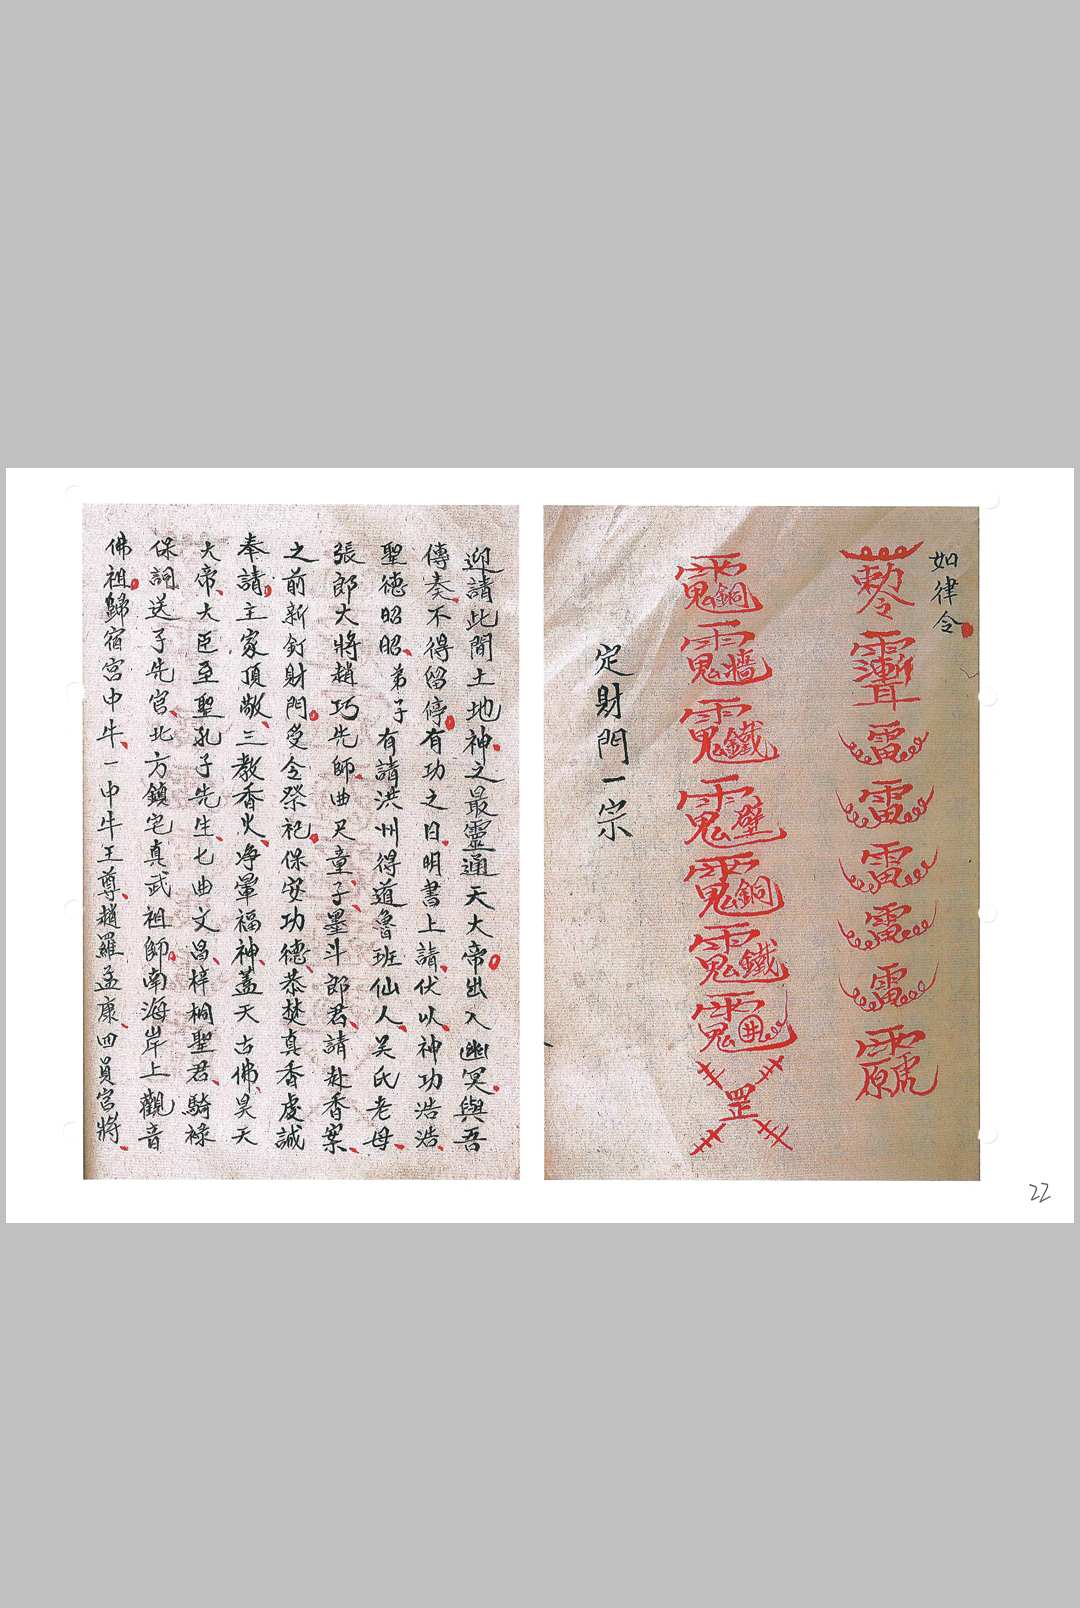 如律令
敕令
雷
雷
雷
雷
雷
罡
定財門一宗
迎請此間土地神之最靈通天大帝出入幽冥與吾
傳奏不得留停有功之日明書上請伏以神功浩浩
聖德昭昭弟子有請洪州得道魯班仙人吴氏老母
張郎大將趙巧先師曲尺童子墨斗郎君請赴香案
之前新釘財門受今祭祀保安功德恭焚真香虔誠
奉請主家頂敬三教香火净葷福神蓋天古佛昊天
大帝大臣至聖孔子先生七曲文昌梓桐聖君騎祿
保詞送子先官北方鎮宅真武祖師南海岸上觀音
佛祖歸宿宫中牛一中牛王尊趙羅孟康四員官將
22